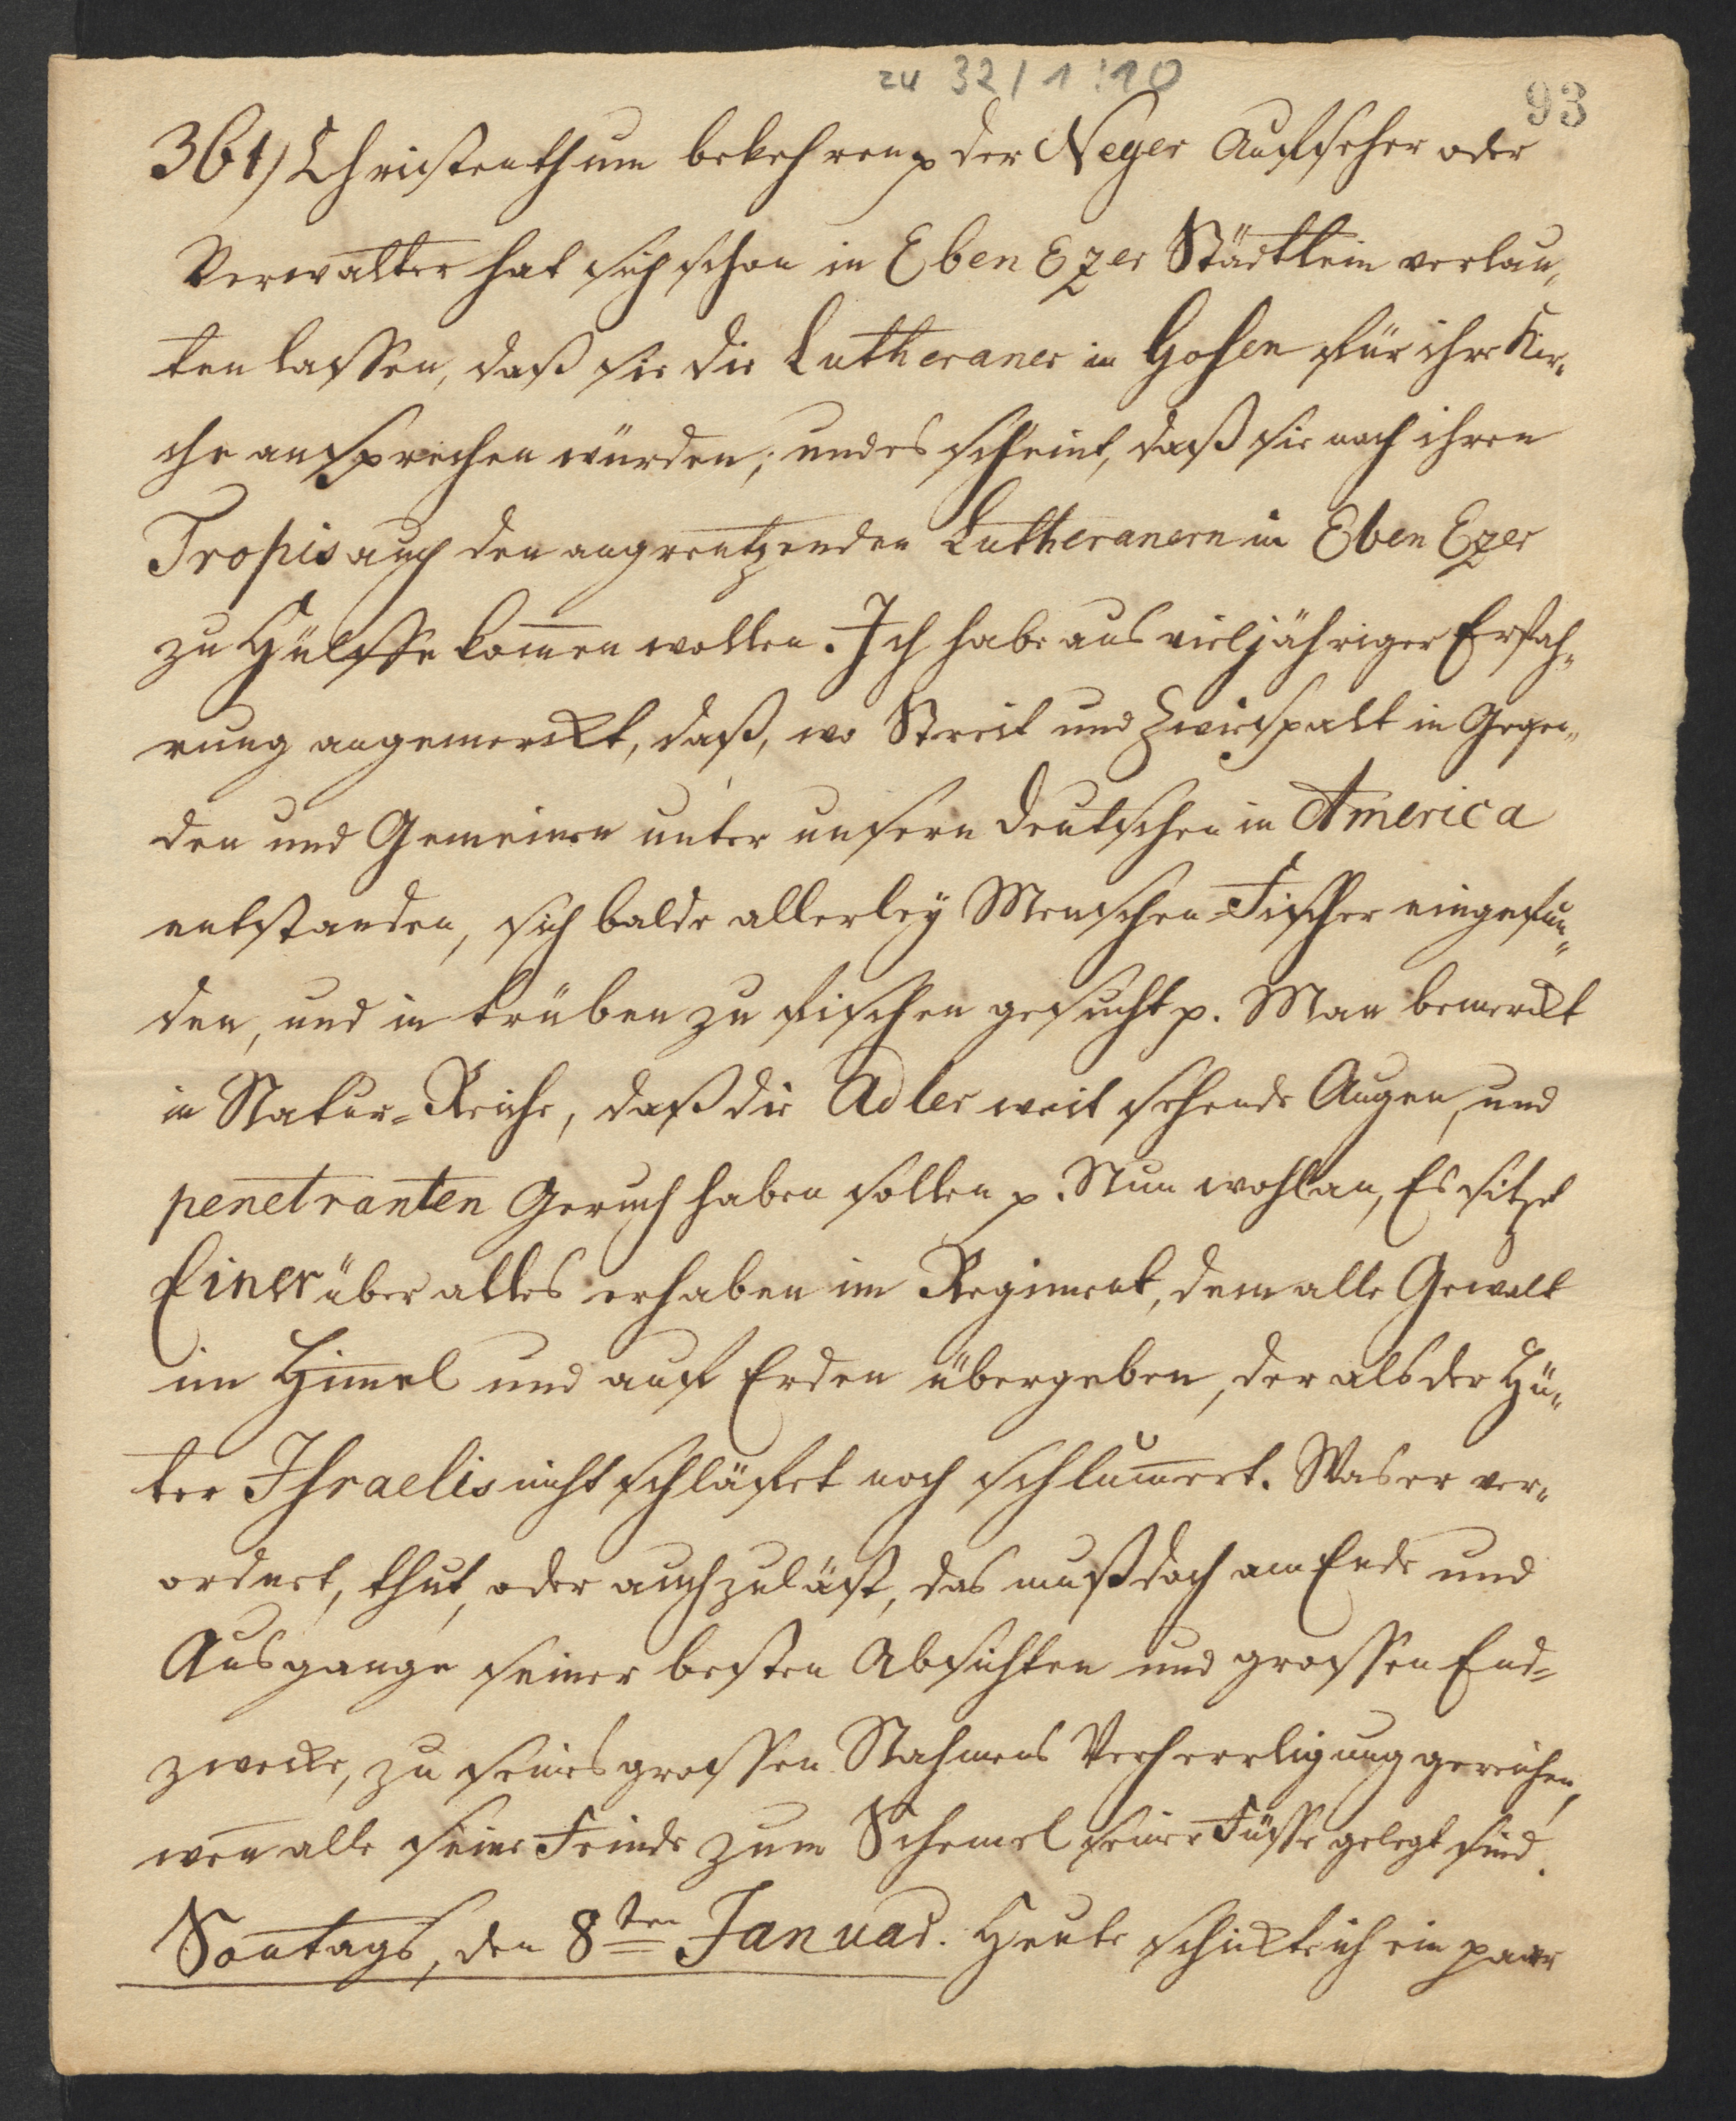 zu 32/1:10
93
361) Christenthum bekehren p der Neger Auffseher oder
Verwalter hat sich schon in Eben Ezer Städtlein verlau„
ten lassen, daß sie die Lutheraner in Gosen für ihre Kir„
che ansprechen würden; und es scheint, daß sie nach ihren
Tropis auch den angrentzenden Lutheranern in Eben Ezer
zu Hülffe kom̅en wollen. Ich habe aus vieljähriger Erfah„
rung angemerckt, daß, wo Streit und Zwiespalt in Gegen„
den und Gemeinen unter unsern Deutschen in America
entstanden, sich balde allerley Menschen-Fischer eingefun„
den, und in trüben zu fischen gesucht p. Man bemerckt
in Natur-Reiche, daß die Adler weit sehende Augen, und
penetranten Geruch haben sollen p. Nun wohlan, Es sitzet
Einer über alles erhaben im Regiment, dem alle Gewalt
im Him̅el und auf Erden übergeben, der als der Hü„
ter Jsraelis nicht schläfet noch schlum̅ert. Was er ver„
ordnet, thut, oder auch zuläst, das muß doch am Ende und
Ausgange seiner besten Absichten und grossen End-
zwecke, zu seines grossen Nahmens Verherrligung gereichen,
wen̅ alle seine Feinde zum Schemel seiner Füsse gelegt sind.
Son̅tags, den 8ten Januar. Heute schickte ich ein paar